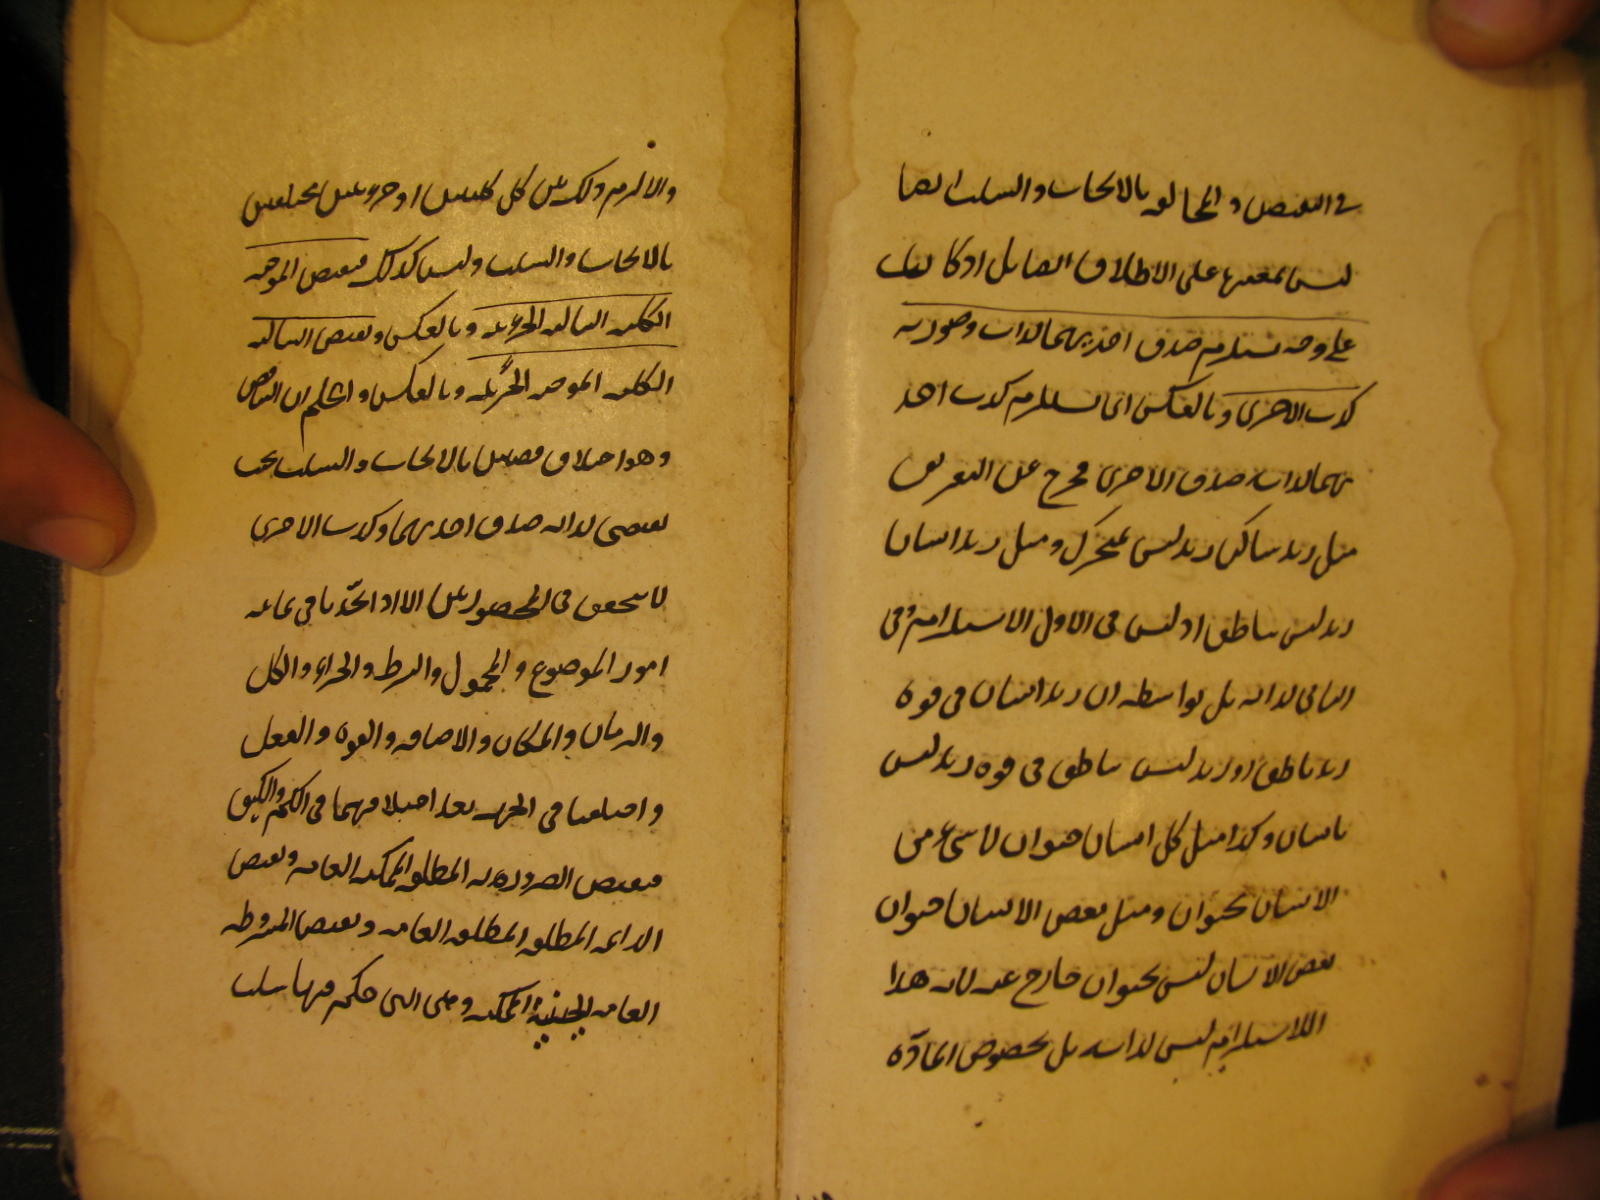 في النقيض والمخالفة بالايجاب والسلب ايضا
ليس بمعتبرها على الاطلاق ايضا بل اذ كانت
على وجه يستلزم صدق احديهما لذات وصورته
كذب الاخرى وبالعكس اى يستلزم كذب احد
يهما لذاته صدق الاخرى فخرج عن التعريف
مثل زيد ساكن زيد ليس بمتحرك ومثل زيد انسان
زيد ليس بناطق اذ ليس في الاول الاستلزام وفى
الثانى لذاته بل بواسطة ان زيد انسان في قوة
زيد ناطق او زيد ليس بناطق في قوة زيد ليس
بانسان وكذا مثل كل انسان حيوان لا شىء من
الانسان بحيوان ومثل بعض الانسان حيوان
بعض الانسان ليس بحيوان خارج عنه لان هذا
الاستلزام ليس لذاته بل بخصوص المادّة
والا لزم ذلك بين كل كليتين او جزئيتين مختلفتين
بالايجاب والسلب وليس كذلك فنقيض الموجبة
الكلية السالبة الجزئية وبالعكس ونقيض السالبة
الكلية الموجبة الجزئية وبالعكس واعلم ان التناقض
وهو اختلاف قضيتين بالايجاب والسلب بحيث
يقتضى لذاته صدق احديهما وكذب الاخرى
لا يتحقق في المحصورتين الا اذا اتحدتا في ثمانية
امور الموضوع والمحمول والشرط والجزء والكل
والزمان والمكان والاضافة والقوة والفعل
واختلفتا في الجهة بعد اختلافهما في الكم والكيف
فنقيض الضرورية المطلقة الممكنة العامة ونقيض
الدائمة المطلقة المطلقة العامة ونقيض المشروطة
العامة الحينية الممكنة وهى التى حكم فيها بسلب